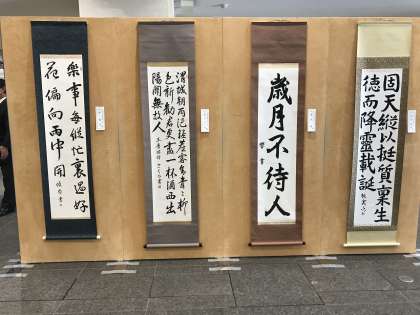 固天縱以挺質稟生
徳而降靈載誕
歳月不待人
渭城朝雨浥輕塵客舎青々柳
色新勧君更盡一杯酒西出
陽関無故人
樂事每從忙裏過好
花偏向雨中開